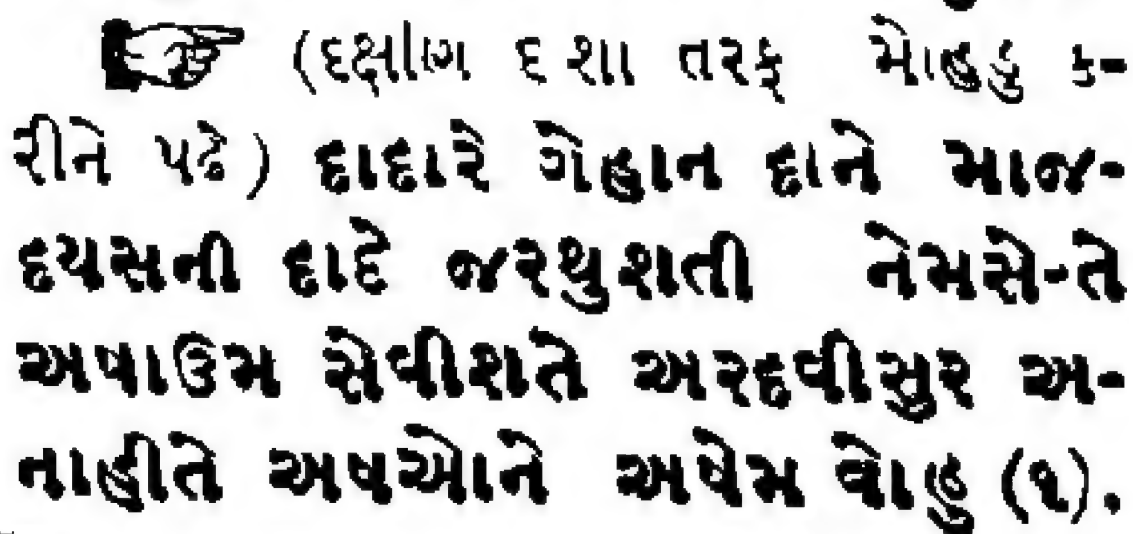 ☞ (દક્ષીણ દશા તરફ મોહડુ ક-
રીને પઢે) દાદારે ગેહાન દાને માજ-
દયસની દાદે જરથુશતી નેમસે-તે
અષાઉમ સેવીશતે અરદવીસુર અ-
નાહીતે અષઓને અષેમ વોહુ (૧).